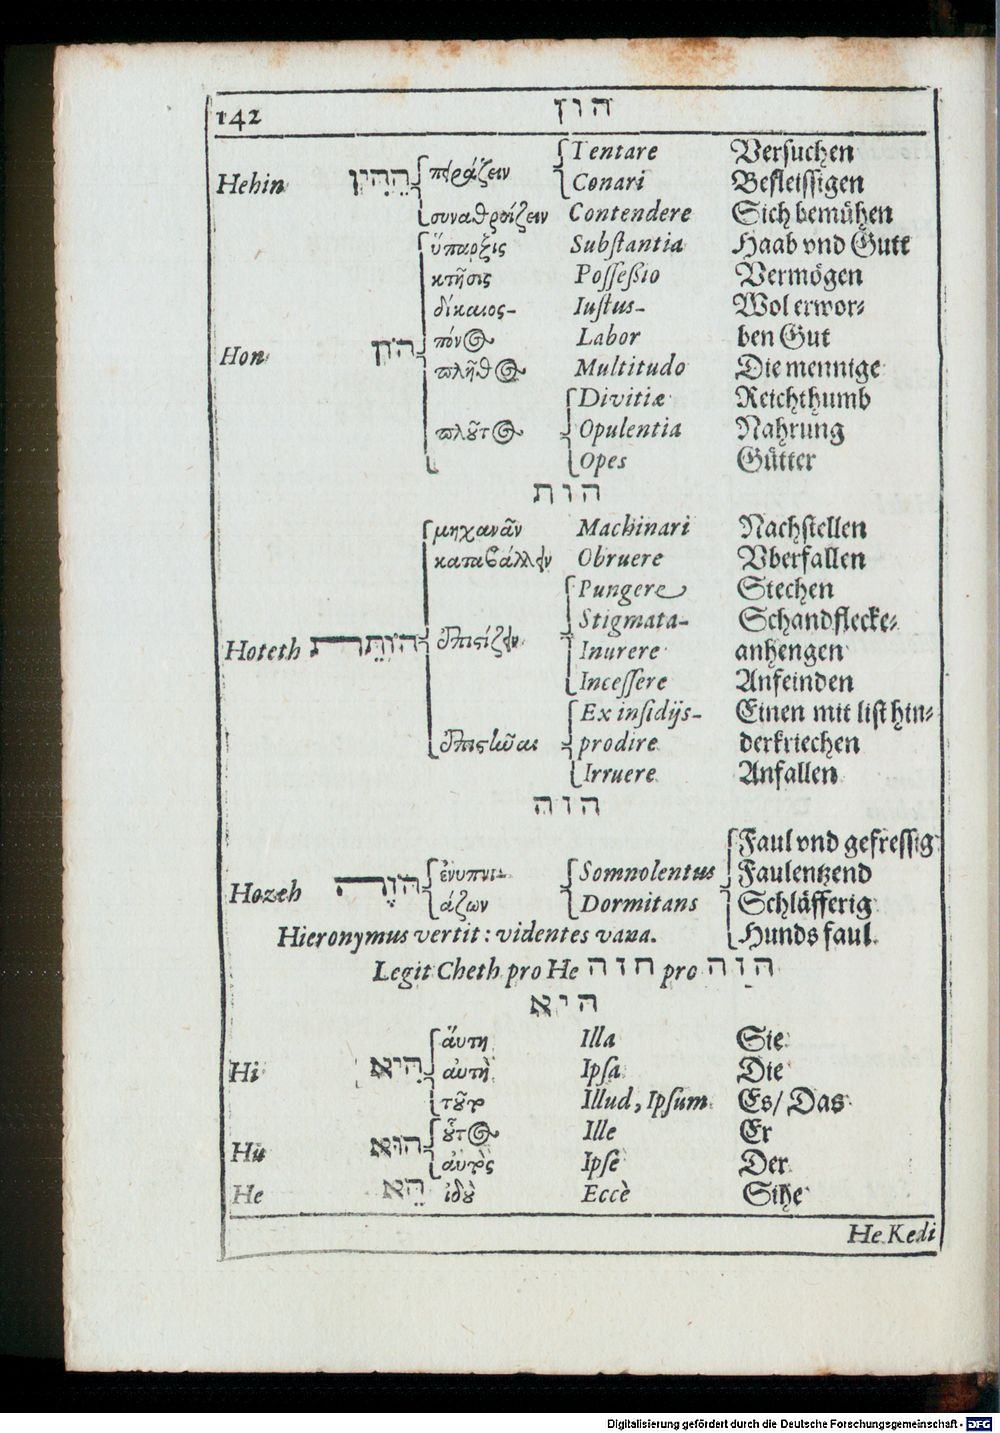 142 הון
Tentare Versuchen
Hehin הֵהִין πειράζειν Conari Befleissigen
συναθροίζειν Contendere Sich bemühen
ὕπαρξις Substantia Haab vnd Gutt
κτῆσις Possessio Vermögen
δίκαιος- Iustus- Wol erwor-
πόνος Labor ben Gut
Hon הוֹן
πλῆθος Multitudo Die mennige
Divitiæ Reichthumb
πλοῦτος Opulentia Nahrung
Opes Gütter
הות
μηχανᾶν Machinari Nachstellen
καταβάλλειν Obruere Vberfallen
Pungere Stechen
Stigmata- Schandflecke-
Hoteth הוֹתֵת ἐπιστίζειν Inurere anhengen
Incessere Anfeinden
Ex insidijs- Einen mit list hin-
prodire derkriechen
Irruere Anfallen
הוה
Faul vnd gefressig
ἐνυπνι- Somnolentus Faulentzend
Hozeh הוֹזֶה άζων Dormitans Schläfferig
Hieronymus vertit: videntes vana. Hunds faul.
Legit Cheth pro He חוה pro הוה
היא
αὕτη Illa Sie
Hi הִיא αὐτὴ Ipsa Die
τοῦτο Illud, Ipsum Es/ Das
οὗτος Ille Er
Hu הוּא αὐτὸς Ipse Der
He הֵא ἰδοὺ Eccè Sihe
He Kedi
Digitalisierung gefördert durch die Deutsche Forschungsgemeinschaft - DFG